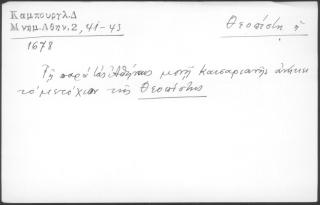 Καμπούργλ.Δ
Μνημ.Αθην.2,41-43
Θεοπίστη ἡ
1678
Τῇ παρὰ τὰς Ἀθήνας μονῇ Καισαριανῆς ἀνήκει
τὸ μετόχιον τῆς Θεοπίστης